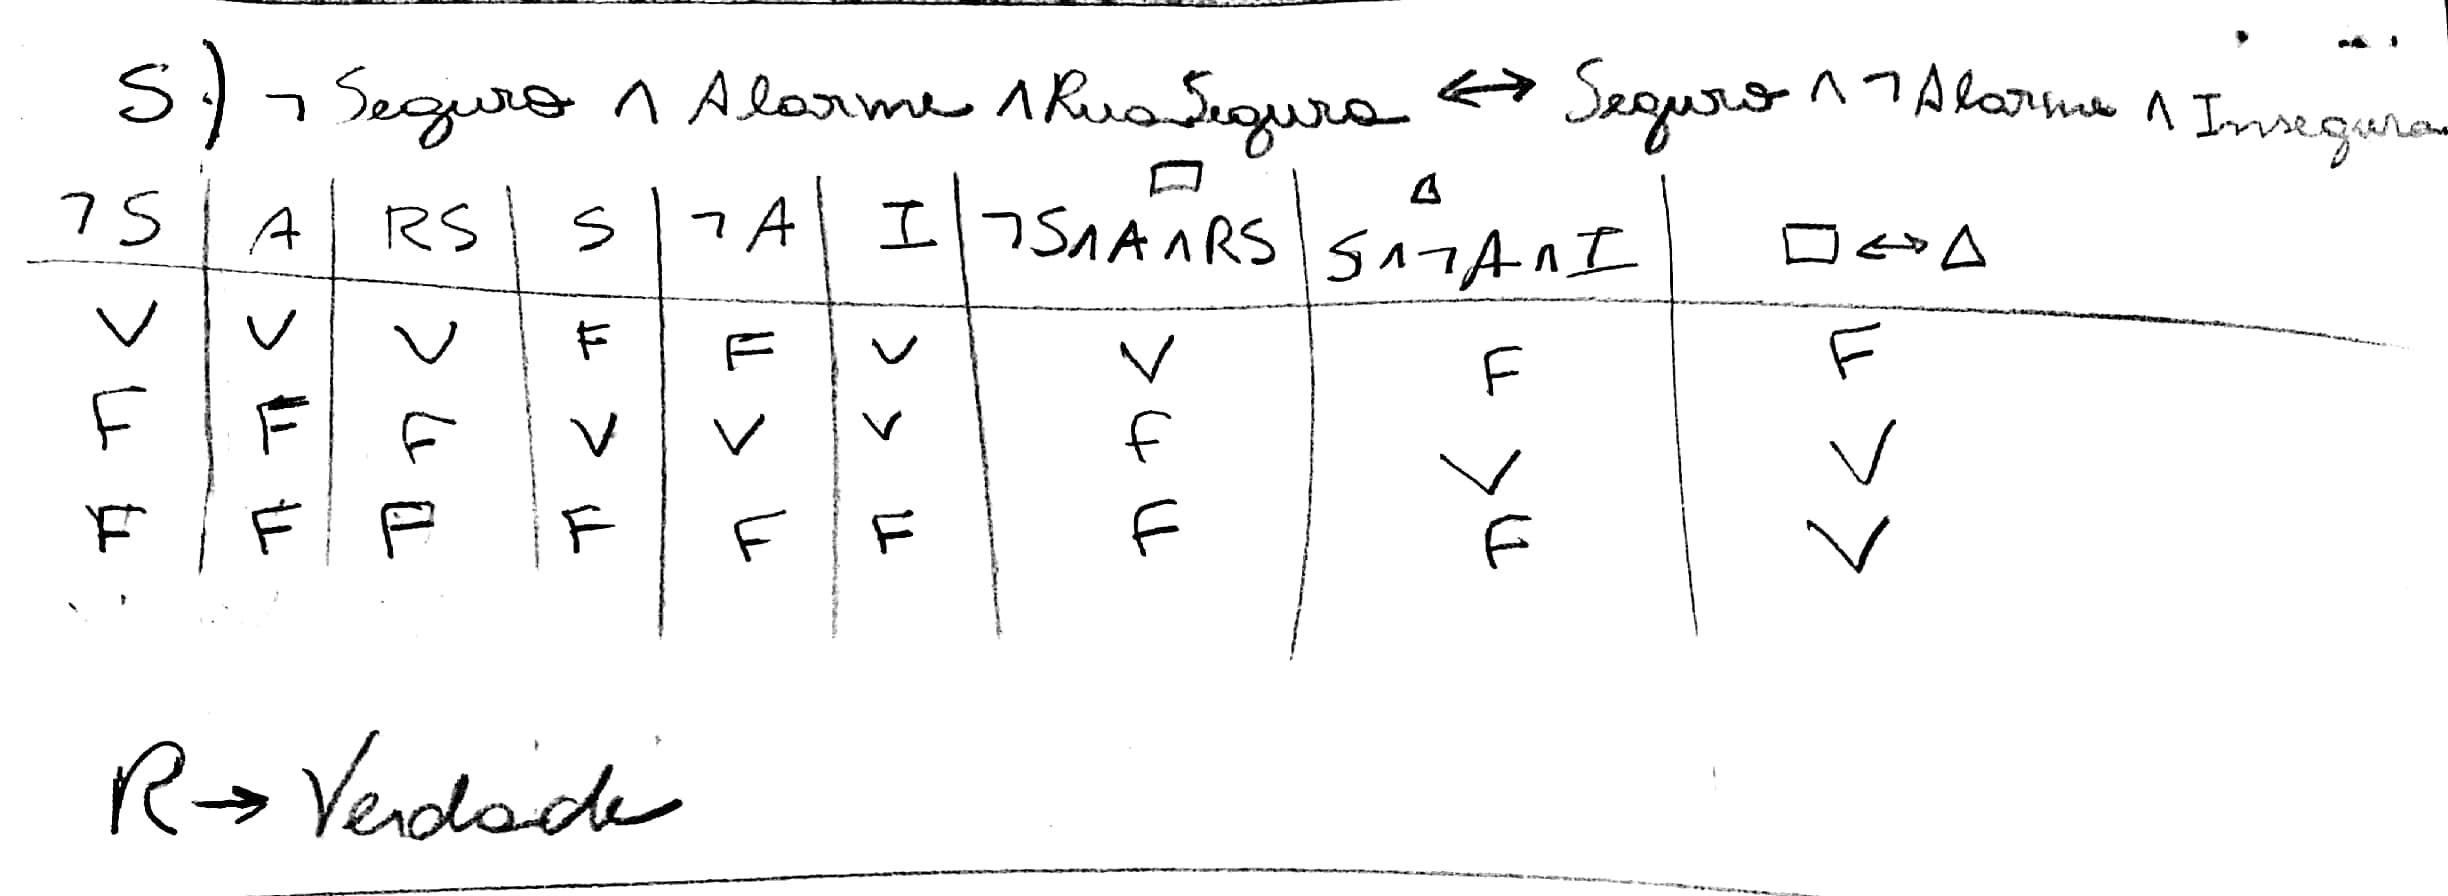 5.) ¬ Seguro ∧ Alarme ∧ RuaSegura ↔ Seguro ∧ ¬ Alarme ∧ Insegura
¬S | A | RS | S | ¬A | I | ¬S∧A∧RS □ | S∧¬A∧I △ | □ ↔ △
V | V | V | F | F | V | V | F | F
F | F | F | V | V | V | F | V | V
F | F | F | F | F | F | F | F | V
R → Verdade